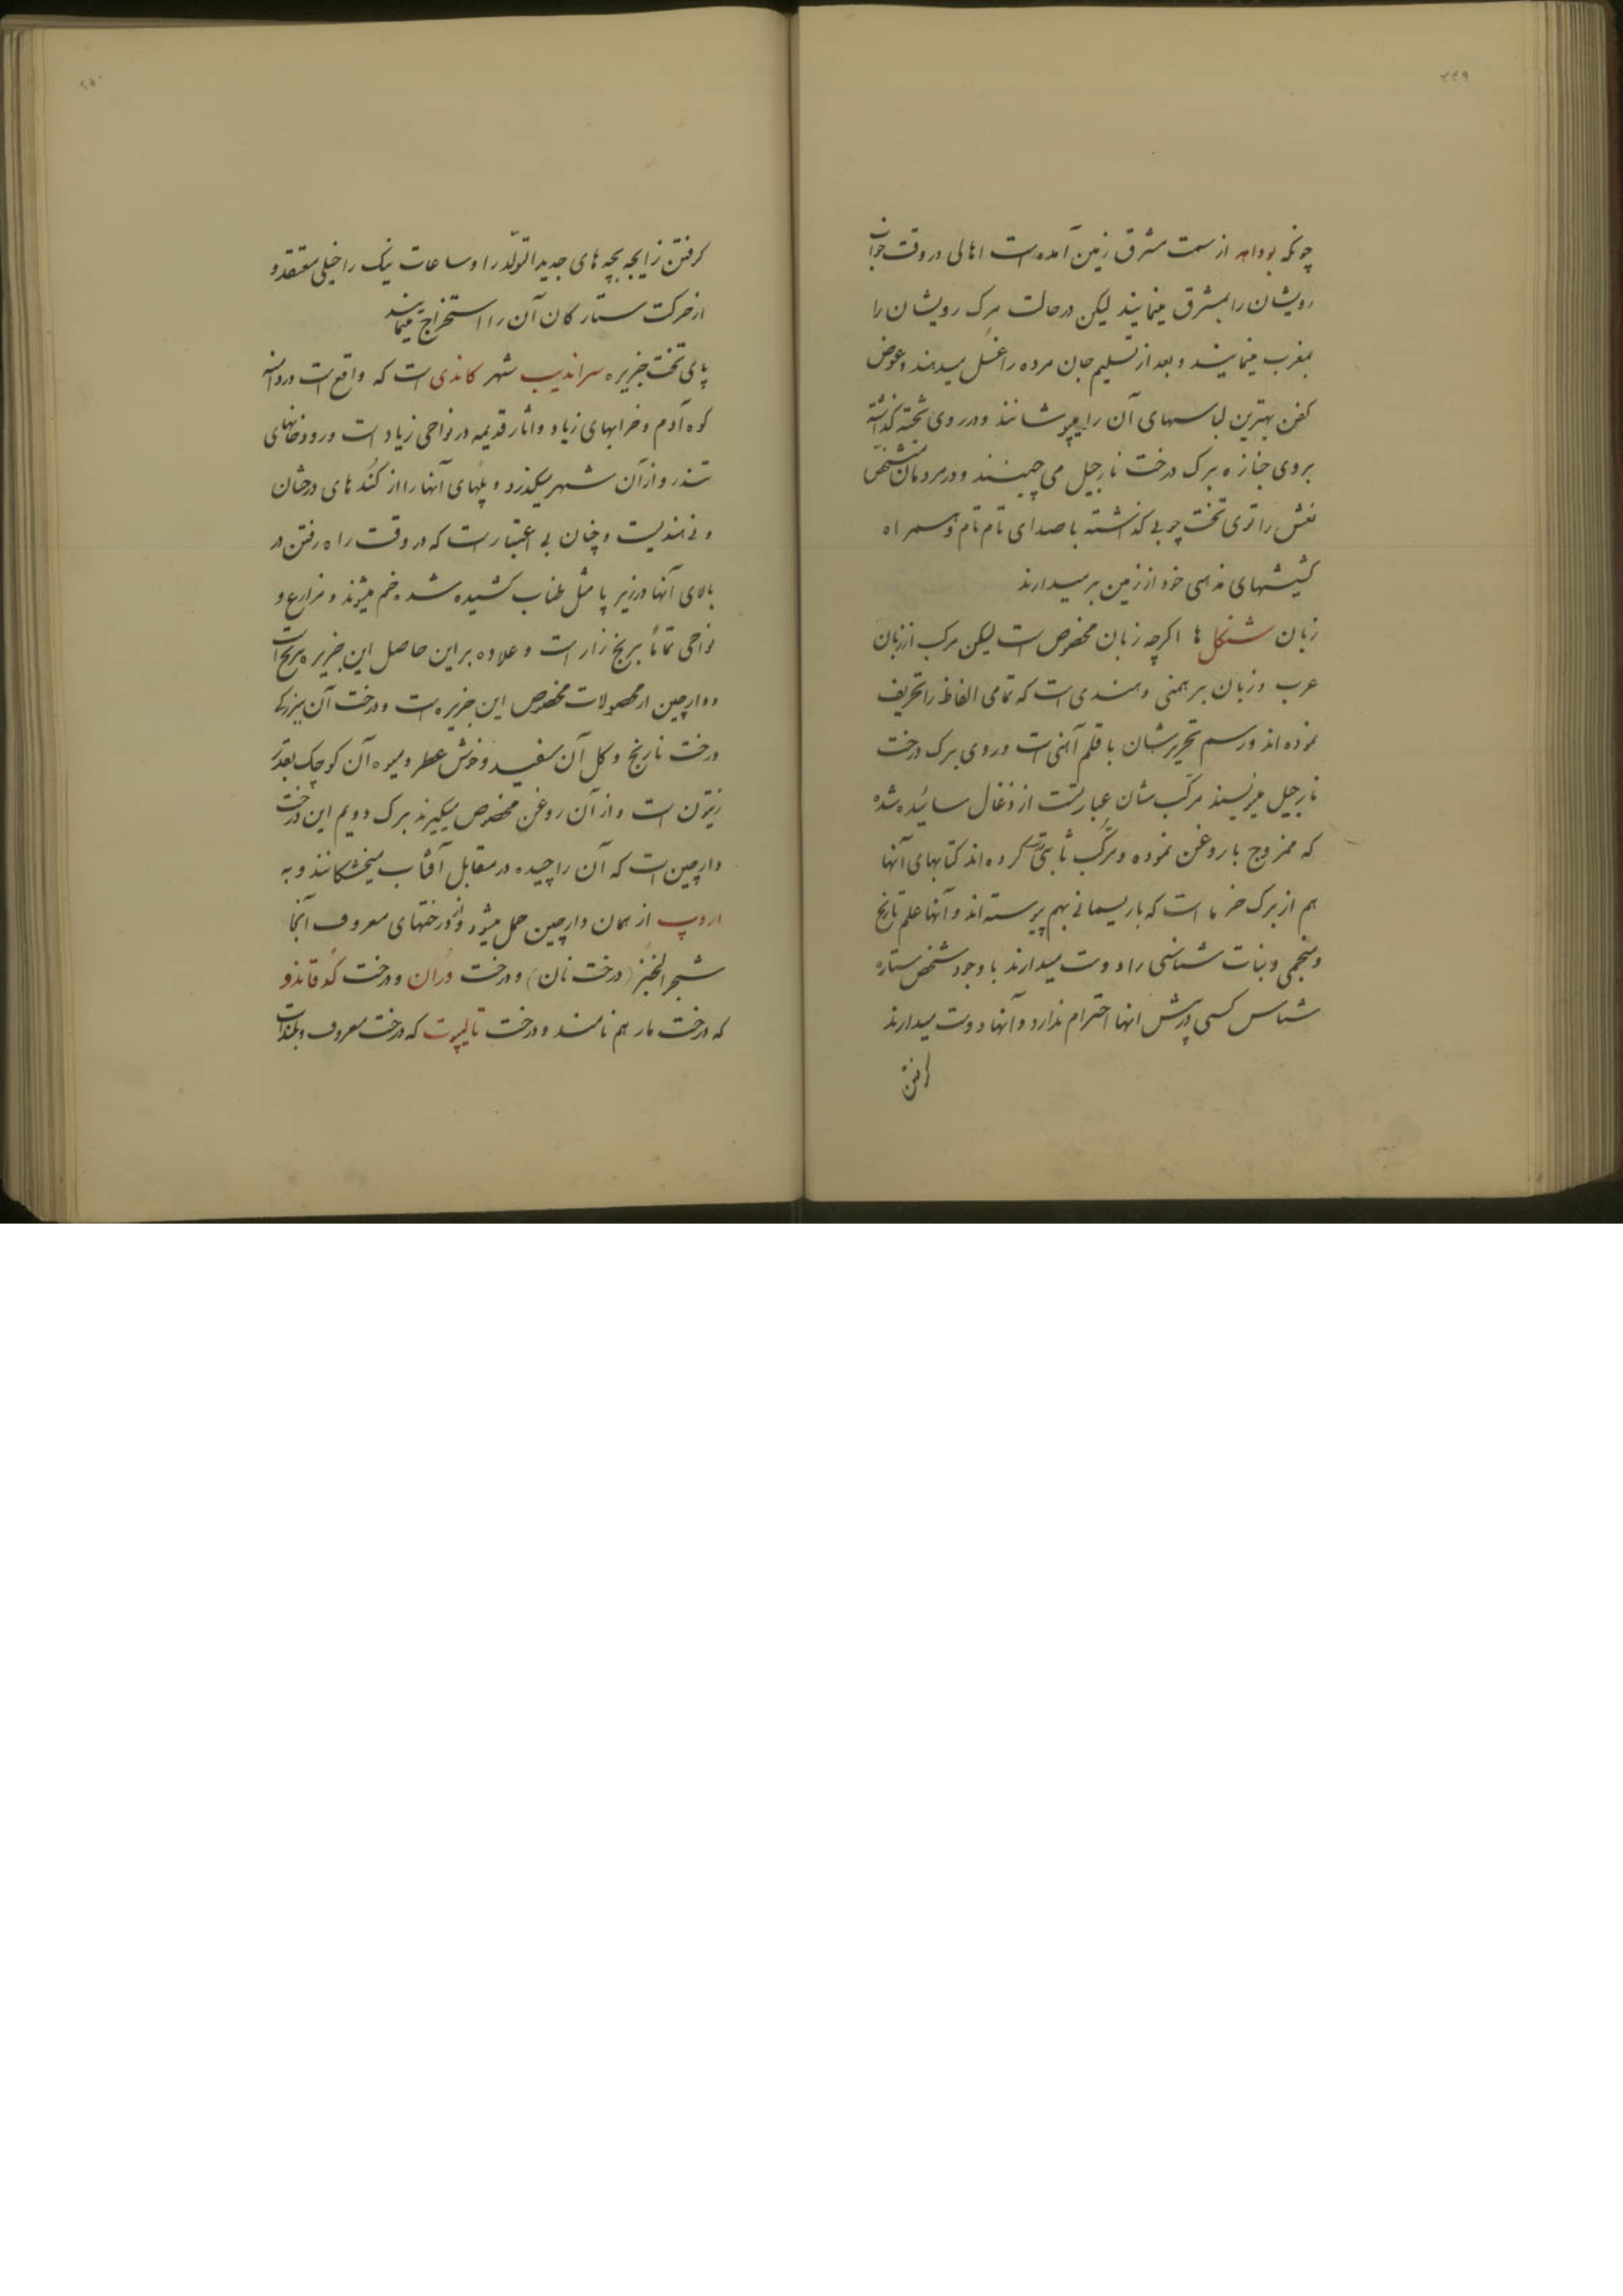 ۲۴۹
چونکه بوداهه از سمت مشرق زمین آمده است اهالی در وقت خواب
رویشان را بمشرق مینمایند لیکن در حالت مرک رویشان را
بمغرب مینمایند و بعد از تسلیم جان مرده را غسل میدهند و عوض
کفن بهترین لباسهای آن را میپوشانند و در روی تخته کذاشته
بروی جنازه برک درخت نارجیل می چینند و در مردمان مشخص
نعش را توی تخت چوبی کذاشته با صدای تام تام و همراه
کشیشهای مذهبی خود از زمین برمیدارند
زبان شنکل ها اکرچه زبان مخصوص است لیکن مرکب از زبان
عرب و زبان برهمنی و هندی است که تمامی الفاظ را تحریف
نموده اند و رسم تحریرشان با قلم آهنی است و روی برک درخت
نارجیل مینویسند مرکب شان عبارتست از ذغال سائیده شده
که ممزوج با روغن نموده و مرکب ثابتی درست کرده اند کتابهای آنها
هم از برک خرما است که با ریسمانی بهم پیوسته اند و آنها علم تاریخ
و منجمی و نبات شناسی را دوست میدارند با وجود شخص ستاره
شناس کسی پیش انها احترام ندارد و آنها دوست میدارند
کرفتن
۲۵۰
کرفتن زایجه بچه های جدید التولّد را و ساعات نیک را خیلی معتقد و
از حرکت ستارکان آن را استخراج مینمایند
پای تخت جزیره سراندیب شهر کاندی است که واقع است در دامنه
کوه آدم و خرابهای زیاد و اثار قدیمه در نواحی زیاد است و رودخانهای
تندرو از آن شهر میکذرد و پلهای آنها را از کنُده های درختان
و نی هندیست و چنان بی اعتبار است که در وقت راه رفتن در
بالای آنها در زیر پا مثل طناب کشیده شده خم میشوند و مزارع و
نواحی تماماً برنج زار است و علاوه بر این حاصل این جزیره برنج است
و دارچین از محصولات مخصوص این جزیره است و درخت آن ببزرکی
درخت نارنج و کل آن سفید و خوش عطر و میوه آن کوچک بقدر
زیتون است و از آن روغن مخصوص میکیرند برک دویم این درخت
دارچین است که آن را چیده در مقابل آفتاب میخشکانند و به
اروپ از همان دارچین حمل میشود و از درختهای معروف آنجا
شجر الخبز (درخت نان) و درخت دُران و درخت کدُقاندو
که درخت مار هم نامند و درخت تالیپوت که درخت معروف و بلند است